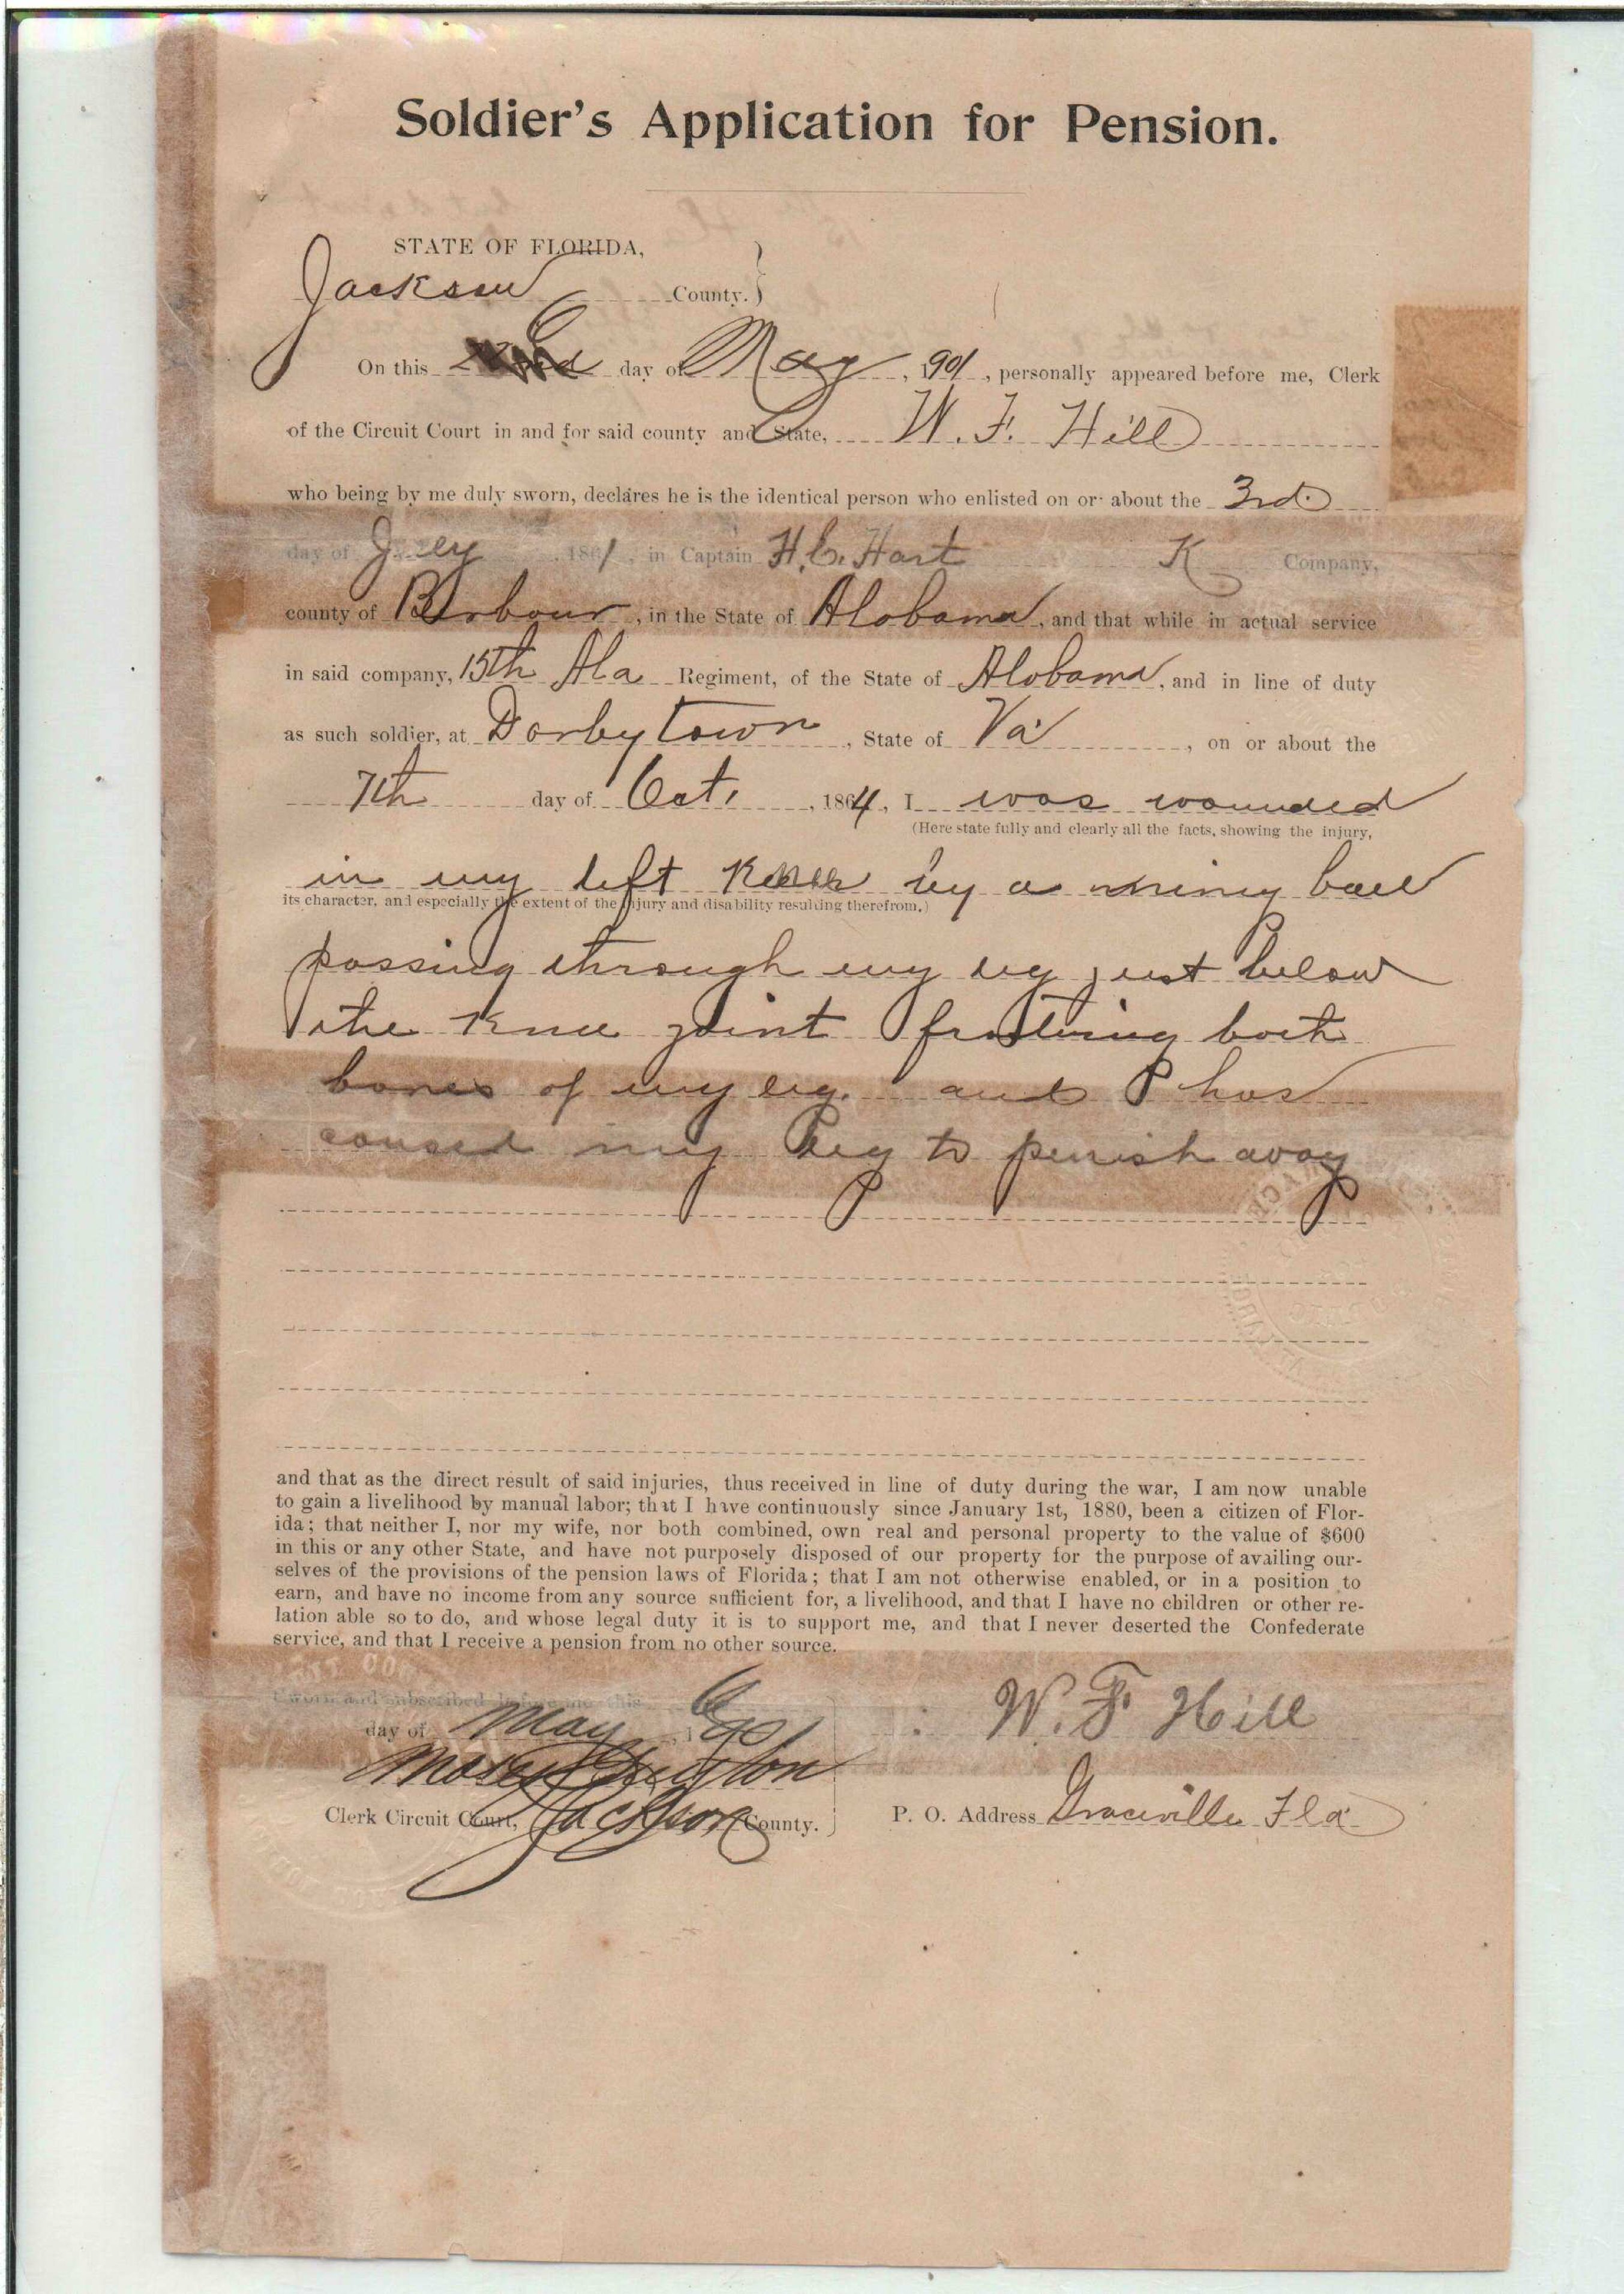 Soldier's Application for Pension.
STATE OF FLORIDA,
Jackson County. }
On this day of May, 1901, personally appeared before me, Clerk
of the Circuit Court in and for said county and State, W. F. Hill
who being by me duly sworn, declares he is the identical person who enlisted on or about the 3rd.
day of July, 1861, in Captain H. C. Hart K Company,
county of Barbour, in the State of Alabama, and that while in actual service
in said company, 15th Ala Regiment, of the State of Alabama, and in line of duty
as such soldier, at Darbytown, State of Va, on or about the
7th day of Oct, 1864, I was wounded
(Here state fully and clearly all the facts, showing the injury,
in my left by a miny ball
its character, and especially the extent of the injury and disability resulting therefrom.)
passing through my leg just below
the Knee joint both
bones of my leg. and has
caused my leg to perish away
and that as the direct result of said injuries, thus received in line of duty during the war, I am now unable
to gain a livelihood by manual labor; that I have continuously since January 1st, 1880, been a citizen of Flor-
ida; that neither I, nor my wife, nor both combined, own real and personal property to the value of $600
in this or any other State, and have not purposely disposed of our property for the purpose of availing our-
selves of the provisions of the pension laws of Florida; that I am not otherwise enabled, or in a position to
earn, and have no income from any source sufficient for, a livelihood, and that I have no children or other re-
lation able so to do, and whose legal duty it is to support me, and that I never deserted the Confederate
service, and that I receive a pension from no other source.
Sworn and subscribed before me this 6
day of May, W. F. Hill
Clerk Circuit Court, Jackson County. } P. O. Address Graceville Fla